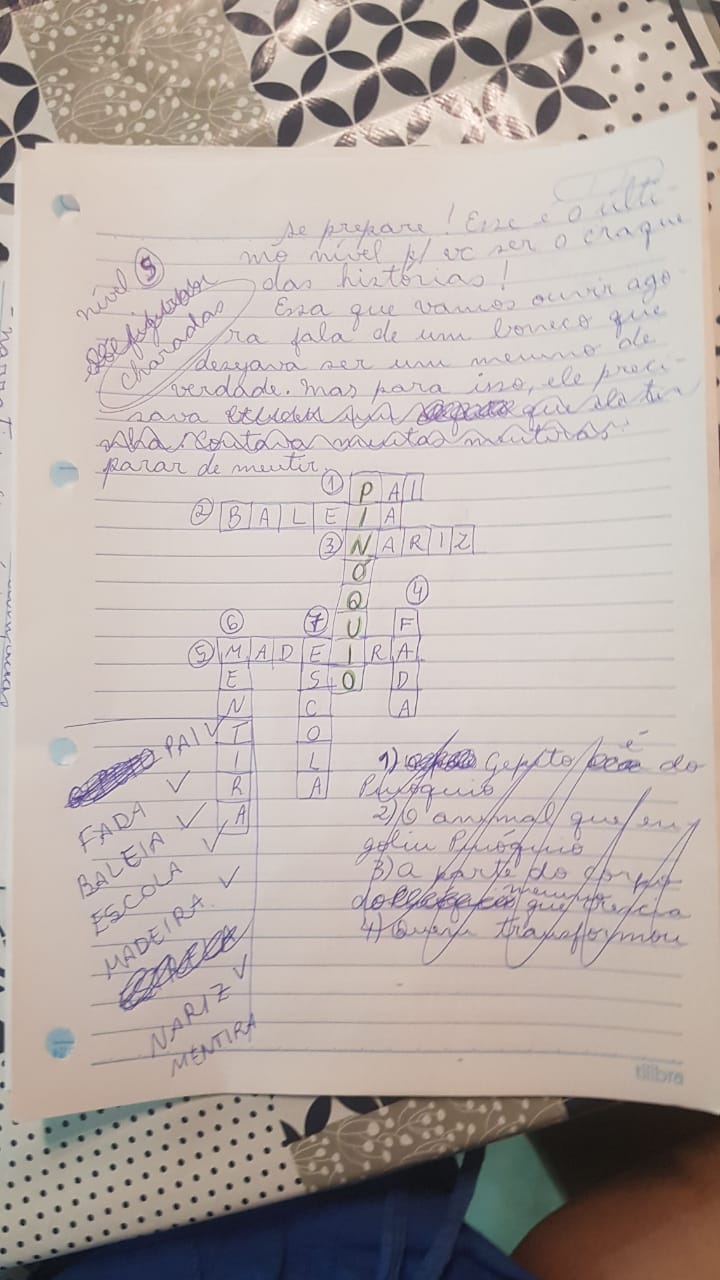 se prepare! Esse é o últi-
mo nível p/ vc ser o craque
das histórias!
nível 5
charadas
Essa que vamos ouvir ago-
ra fala de um boneco que
desejava ser um menino de
verdade. Mas para isso, ele preci-
sava que ele tin
contava muitas mentiras
parar de mentir.
1 PAI
2 BALEIA
3 NARIZ
PINÓQUIO
4 FADA
5 MADEIRA
6 MENTIRA
7 ESCOLA
PAI ✓
FADA ✓
BALEIA ✓
ESCOLA ✓
MADEIRA ✓
NARIZ ✓
MENTIRA
1) Gepeto é do
Pinóquio
2) O animal que en
goliu Pinóquio
3) a parte do corpo
do menino que crescia
4) Quem transformou
tilibra